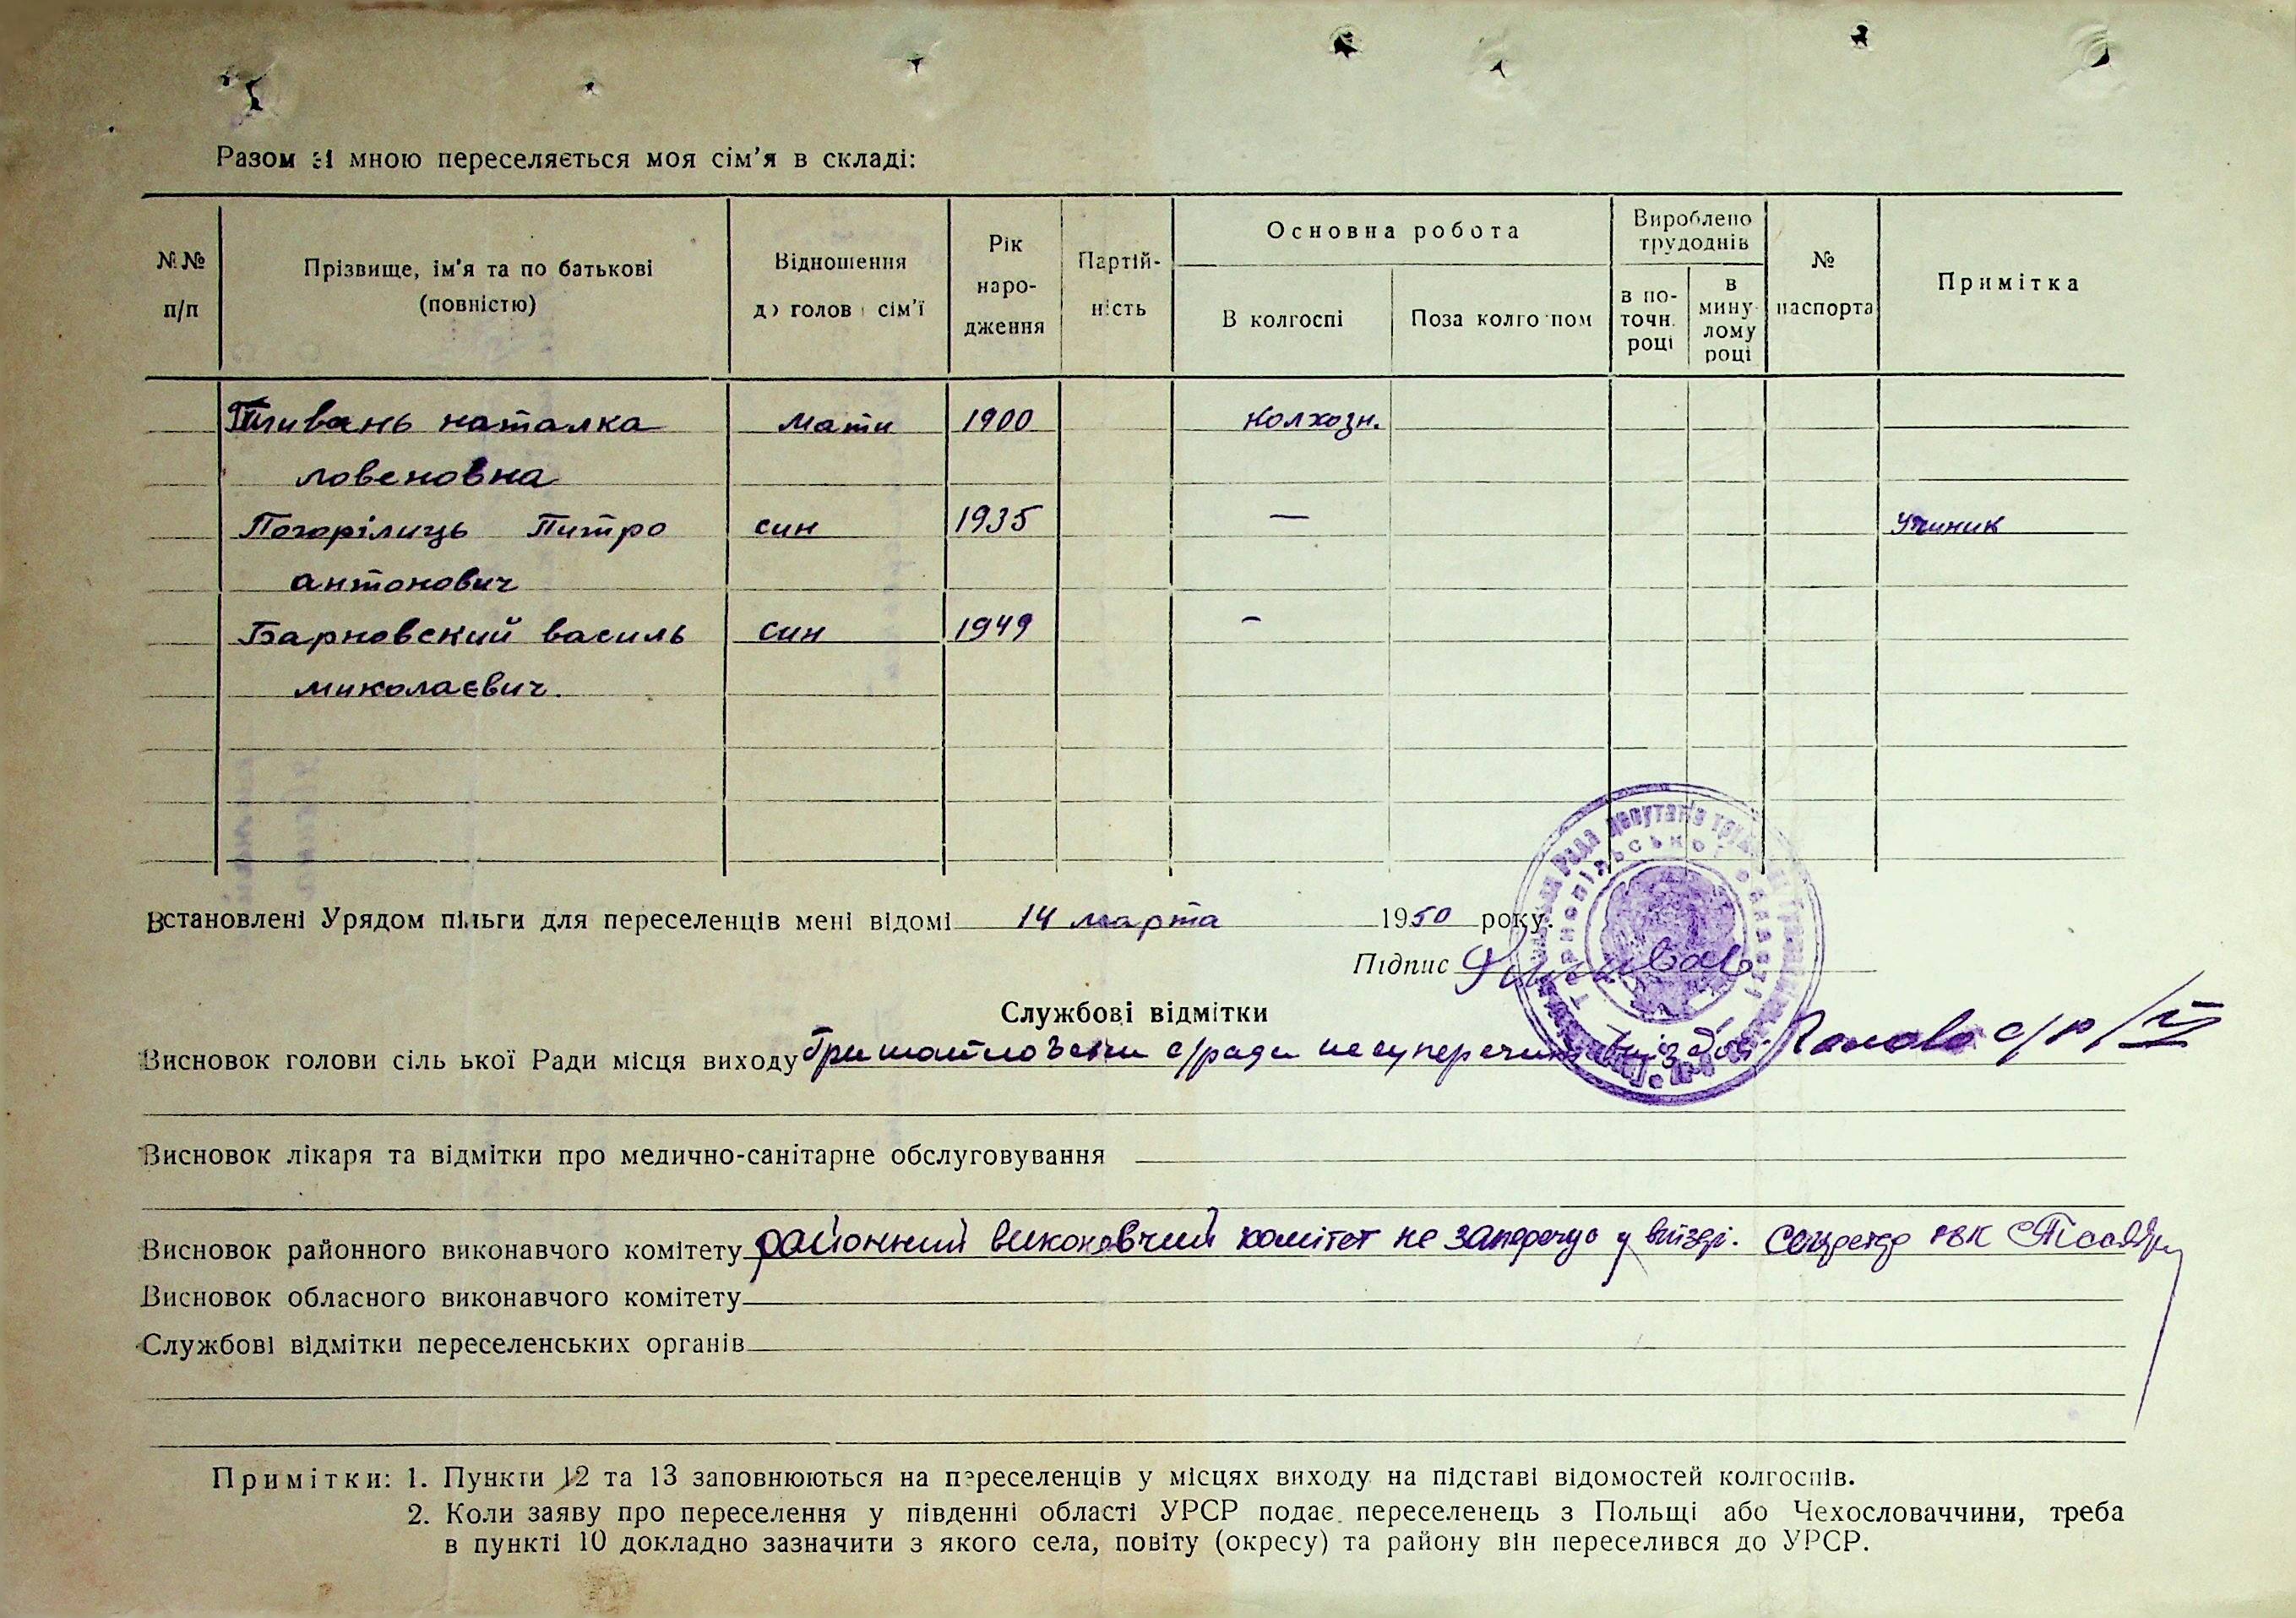 Разом зі мною переселяється моя сім'я в складі:
№№ п/п
Прізвище, ім'я та по батькові (повністю)
Відношення до голови сім'ї
Рік народження
Партій-ність
Основна робота
В колгоспі
Поза колгоспом
Вироблено трудоднів
в по-точн. році
в мину-лому році
№ паспорта
Примітка
Пивань наталка мати 1900 колхозн.
ловеновна
Погорілиць Питро син 1935 — Ученик
антонович
Барновский василь син 1949 –
миколаєвич.
Встановлені Урядом пільги для переселенців мені відомі 14 марта 1950 року.
Підпис
Службові відмітки
Висновок голови сільської Ради місця виходу с/ради Голова с/р
Висновок лікаря та відмітки про медично-санітарне обслуговування
Висновок районного виконавчого комітету районний виконавчий комітет не заперечує у виїзді. Секретар РВК
Висновок обласного виконавчого комітету
Службові відмітки переселенських органів
Примітки: 1. Пункти 12 та 13 заповнюються на переселенців у місцях виходу на підставі відомостей колгоспів.
2. Коли заяву про переселення у південні області УРСР подає переселенець з Польщі або Чехословаччини, треба
в пункті 10 докладно зазначити з якого села, повіту (окресу) та району він переселився до УРСР.